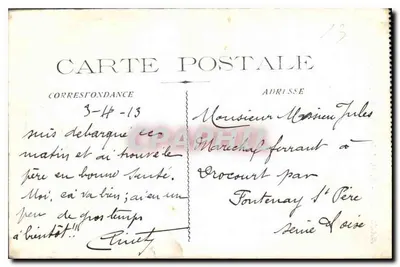 13
CARTE POSTALE
CORRESPONDANCE
ADRESSE
3-4-13
suis debarqué ces
matins et ai trouvé le
père en bonne santé.
Moi, ca va bien; j'ai eu un
peu de gros temps
à bientôt!!
Monsieur Jules
Marechal ferrant à
Drocourt par
Fontenay St Père
Seine & Oise